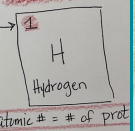 1
H
Hydrogen
atomic # = # of prot